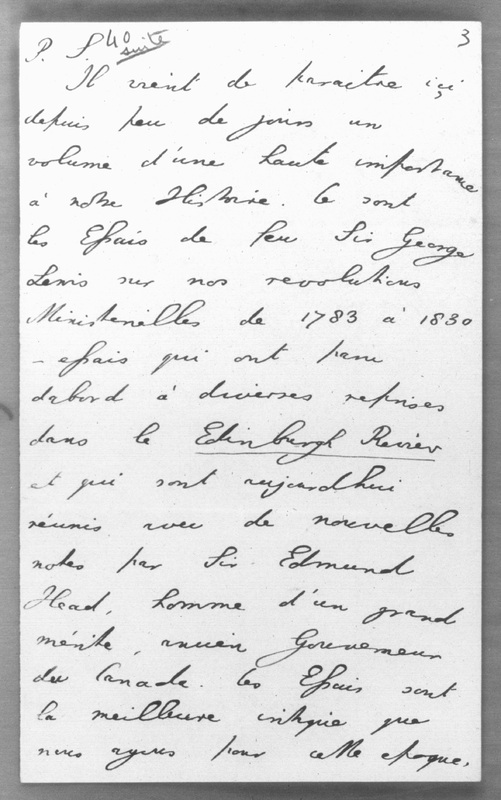 P. S. 40 suite 3
Il vient de paraitre ici
depuis peu de jours un
volume d'une haute importance
à notre Histoire. Ce sont
les Essais de feu Sir George
Lewis sur nos revolutions
Ministerielles de 1783 à 1830
– essais qui ont paru
dabord à diverses reprises
dans le Edinburgh Review
et qui sont aujourdhui
réunis avec de nouvelles
notes par Sir Edmund
Head, homme d'un grand
mérite, ancien Gouverneur
du Canada. Les Essais sont
la meilleure critique que
nous ayons pour cette epoque.